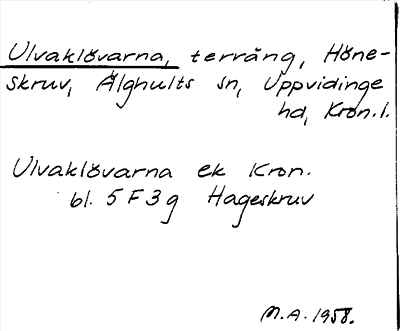 Ulvaklövarna, terräng, Höne-
skruv, Älghults sn, Uppvidinge
hd, Kron.l.
Ulvaklövarna ek Kron.
bl. 5 F 3 g Hageskruv
M.A. 1958.